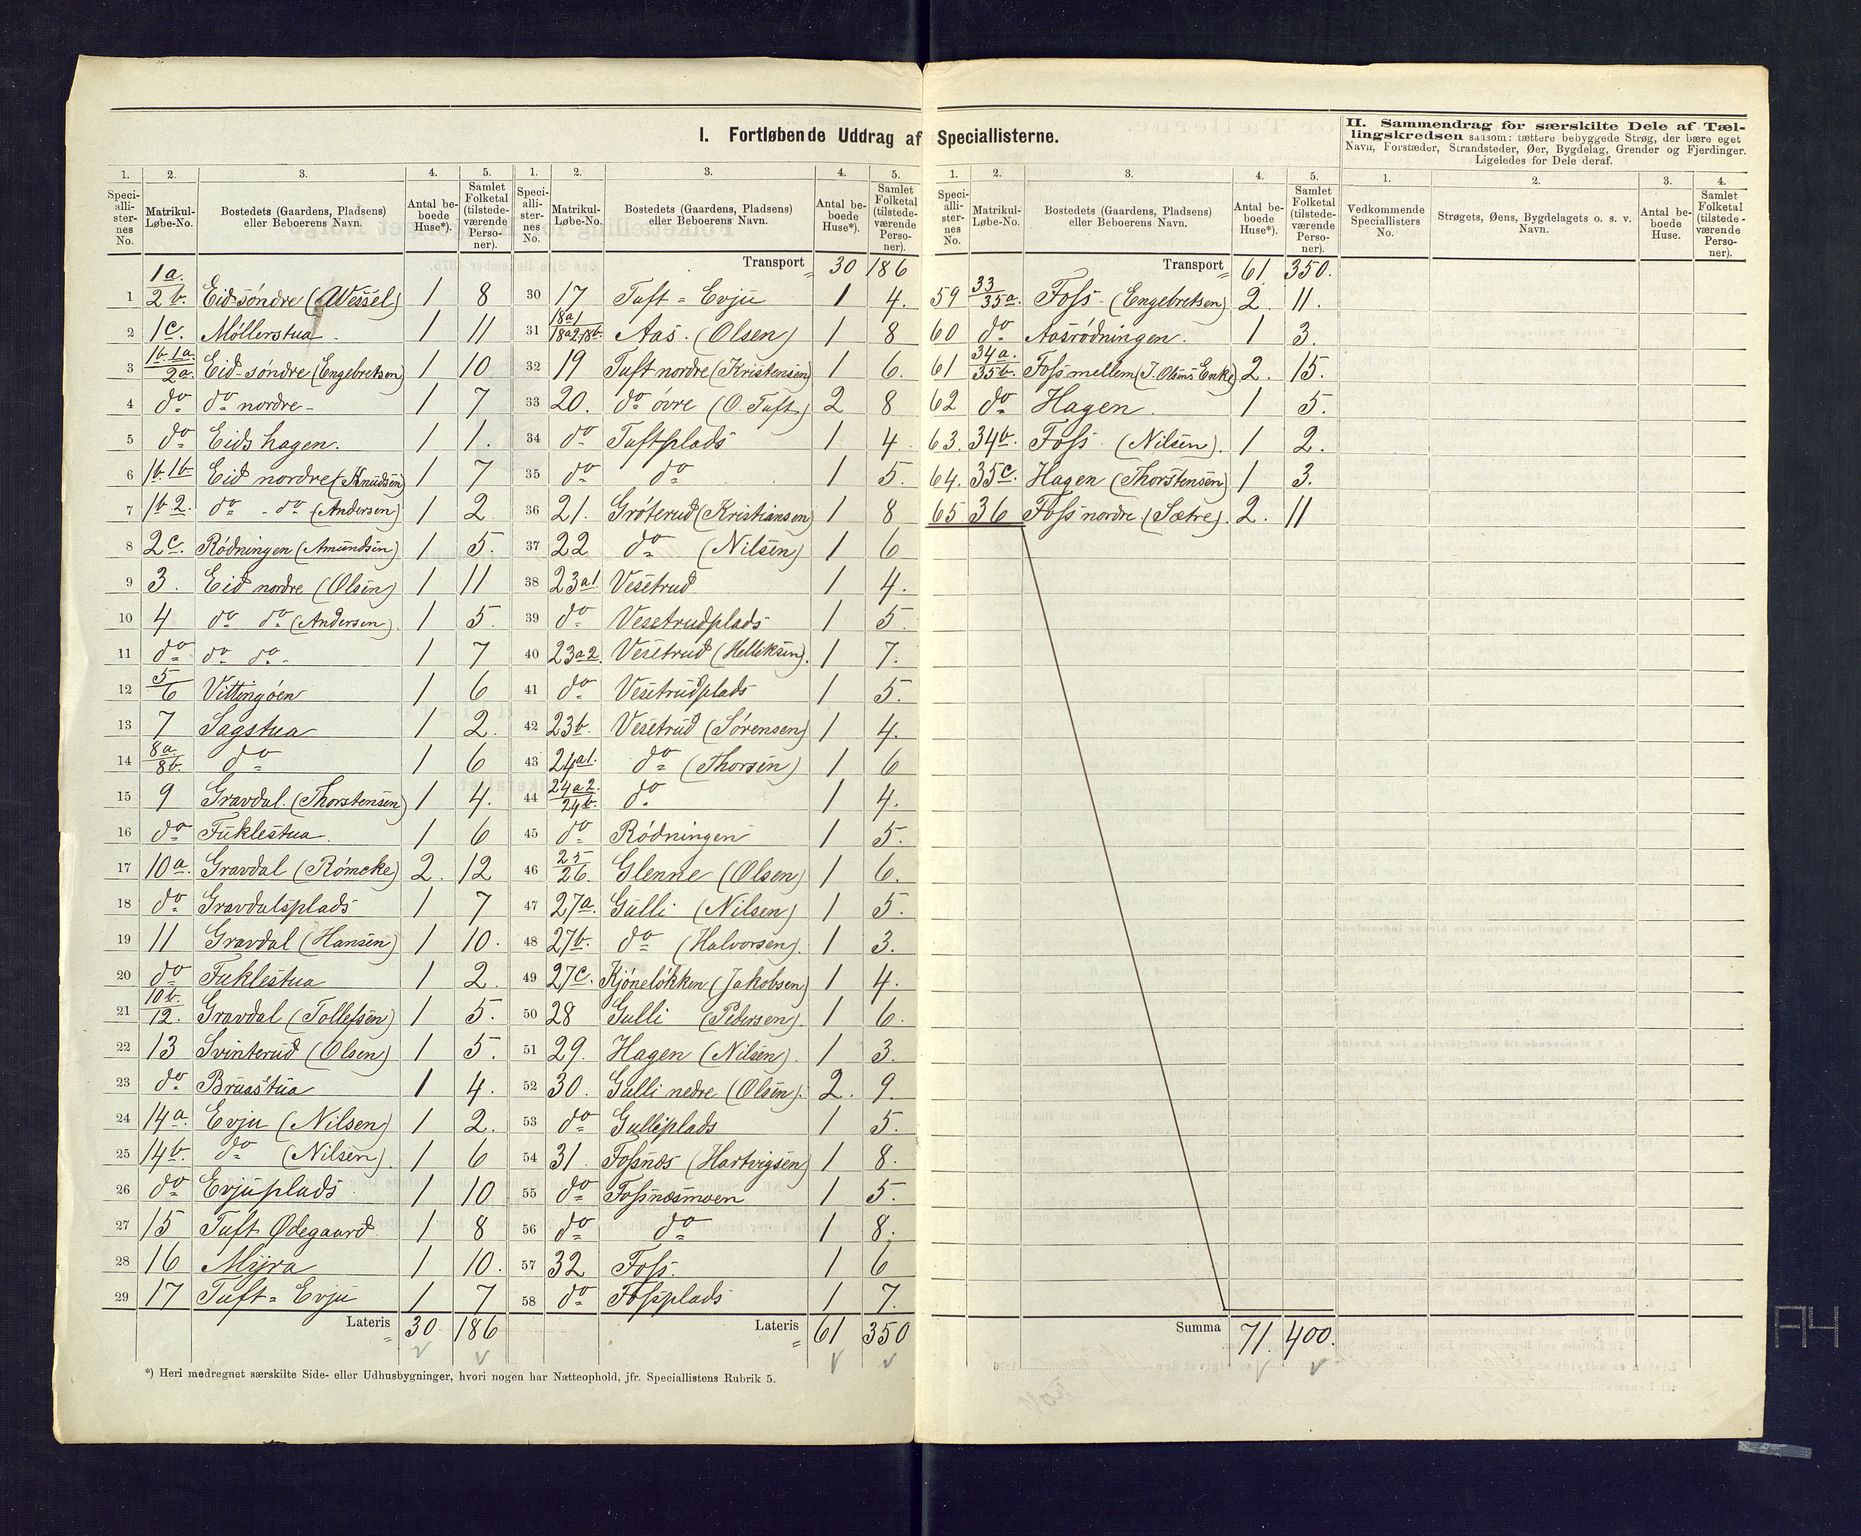 I. Fortløbende Uddrag af Speciallisterne.
1. 2. 3. 4. 5.
Speciallisternes No. Matrikul-Løbe-No. Bostedets (Gaardens, Pladsens) eller Beboerens Navn. Antal beboede Huse*). Samlet Folketal (tilstedeværende Personer).
1 1a./2b. Eid søndre (Wessel) 1 8
2 1c. Møllerstua. 1 11
3 1b.1a./2a. Eid-søndre (Engebretsen) 1 10
4 do do nordre- 1 7
5 do Eidshagen. 1 1.
6 1b.1b. Eid nordre (Knudsen) 1 7
7 1b 2. do - do (Andersen) 1 2.
8 2c. Rødningen (Amundsen) 1 5.
9 3. Eid nordre (Olsen) 1 11
10 4 do do (Andersen). 1 5.
11 do do do- 1 7
12 5/6 Vittingøen 1 6
13 7 Sagstua 1 2.
14 8a./8b. do 1 6
15 9 Gravdal. (Thorstensen) 1 4.
16 do Fuklestua. 1 6
17 10a. Gravdal (Rømcke) 2. 12
18 do Gravdalsplads 1 7
19 11 Gravdal (Hansen) 1 10.
20 do Fuklestua 1 2.
21 10b./12. Gravdal (Tollefsen) 1 5.
22 13 Svinterud (Olsen) 1 5.
23 do Bruastua 1 4.
24 14a. Evju (Nilsen) 1 2.
25 14b. do (Nilsen). 1 6
26 do Evjuplads. 1 10
27 15 Tuft Ødegaard 1 8
28 16 Myra 1 10.
29 17 Tuft = Evju 1 7
Lateris 30 186
*) Heri medregnet særskilte Side- eller Udhusbygninger, hvori nogen har Natteophold, jfr. Speciallistens Rubrik 5.
1. 2. 3. 4. 5.
Speciallisternes No. Matrikul-Løbe-No. Bostedets (Gaardens, Pladsens) eller Beboerens Navn. Antal beboede Huse*). Samlet Folketal (tilstedeværende Personer).
Transport 30 186
30 17 Tuft = Evju 1 4.
31 18a1/18a2,18b. Aas. (Olsen) 1 8
32 19 Tuft nordre (Kristensen) 1 6.
33 20. do øvre (O. Tuft) 2 8
34 do Tuftplads 1 4.
35 do do 1 5.
36 21. Grøterud (Kristiansen) 1 8
37 22 do (Nilsen) 1 6
38 23a1. Vesetrud 1 4.
39 do Vesetrudplads 1 5.
40 23a2. Vesetrud (Helliksen). 1 7.
41 do Vesetrudplads 1 5.
42 23b. Vesetrud (Sørensen) 1 4.
43 24a1. do (Thorsen) 1 6
44 24a2./24b. do. 1 4.
45 do Rødningen 1 5.
46 25/26. Glenne (Olsen) 1 6.
47 27a. Gulli (Nilsen) 1 5.
48 27b. do (Halvorsen). 1 3.
49 27c. Kjøneløkken (Jakobsen) 1 4.
50 28 Gulli (Pedersen). 1 6.
51 29. Hagen (Nilsen). 1 3.
52 30. Gulli nedre (Olsen). 2. 9.
53 do Gulliplads 1 5.
54 31. Fossnæs (Hartvigsen) 1 8.
55 do Fossnæsmoen 1 5.
56 do do 1 8.
57 32 Foss. 1 6
58 do Fossplads 1 7.
Lateris 61 350
1. 2. 3. 4. 5.
Speciallisternes No. Matrikul-Løbe-No. Bostedets (Gaardens, Pladsens) eller Beboerens Navn. Antal beboede Huse*). Samlet Folketal (tilstedeværende Personer).
Transport 61 350.
59 33/35a. Foss- (Engebretsen) 2. 11.
60 do Aasrødningen. 1 3.
61 34a./35b. Foss mellem (J. Olsens Enke) 2. 15.
62 do Hagen. 1 5.
63. 34b. Foss. (Nilsen). 1 2.
64. 35c. Hagen (Thorstensen) 1 3.
65 36 Foss nordre (Sætre). 2. 11
Summa 71. 400.
II. Sammendrag for særskilte Dele af Tællingskredsen saasom: tættere bebyggede Strøg, der bære eget
Navn, Forstæder, Strandsteder, Øer, Bygdelag, Grender og Fjerdinger.
Ligeledes for Dele deraf.
1. 2. 3. 4.
Vedkommende Speciallisters No. Strøgets, Øens, Bygdelagets o. s. v. Navn. Antal beboede Huse. Samlet Folketal (tilstedeværende Personer).
A4